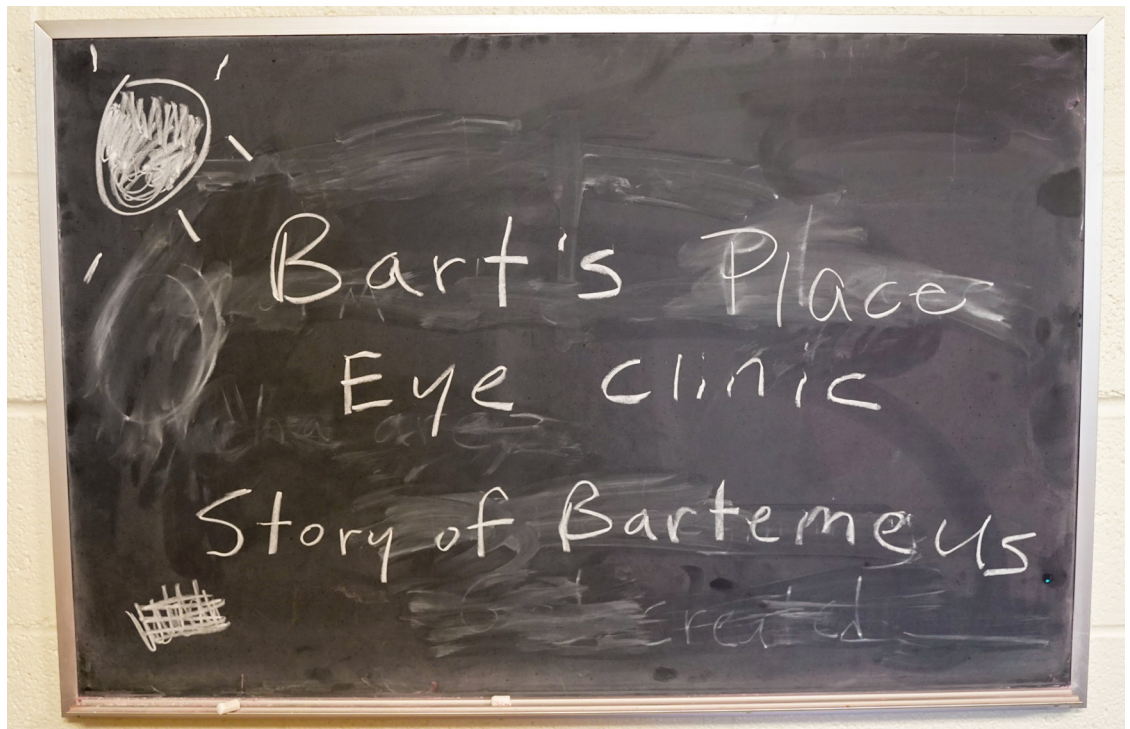 Bart's Place
Eye Clinic
Story of Bartemeus